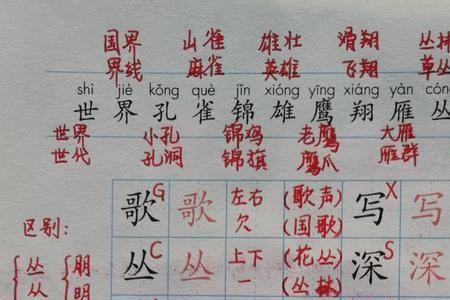 国界 山雀 雄壮 滑翔 丛林
界线 麻雀 英雄 飞翔 草丛
shì jiè kǒng què jǐn xióng yīng xiáng yàn cóng
世界孔雀锦雄鹰翔雁丛
世界 小孔 锦鸡 老鹰 大雁
世代 孔洞 锦旗 鹰爪 雁群
歌 G 歌 左右 (歌声) 写 X 写
欠 (国歌)
区别:
丛 C 丛 上下 (花丛) 深 S 深
一 (丛林)
丛 朋
丛 明